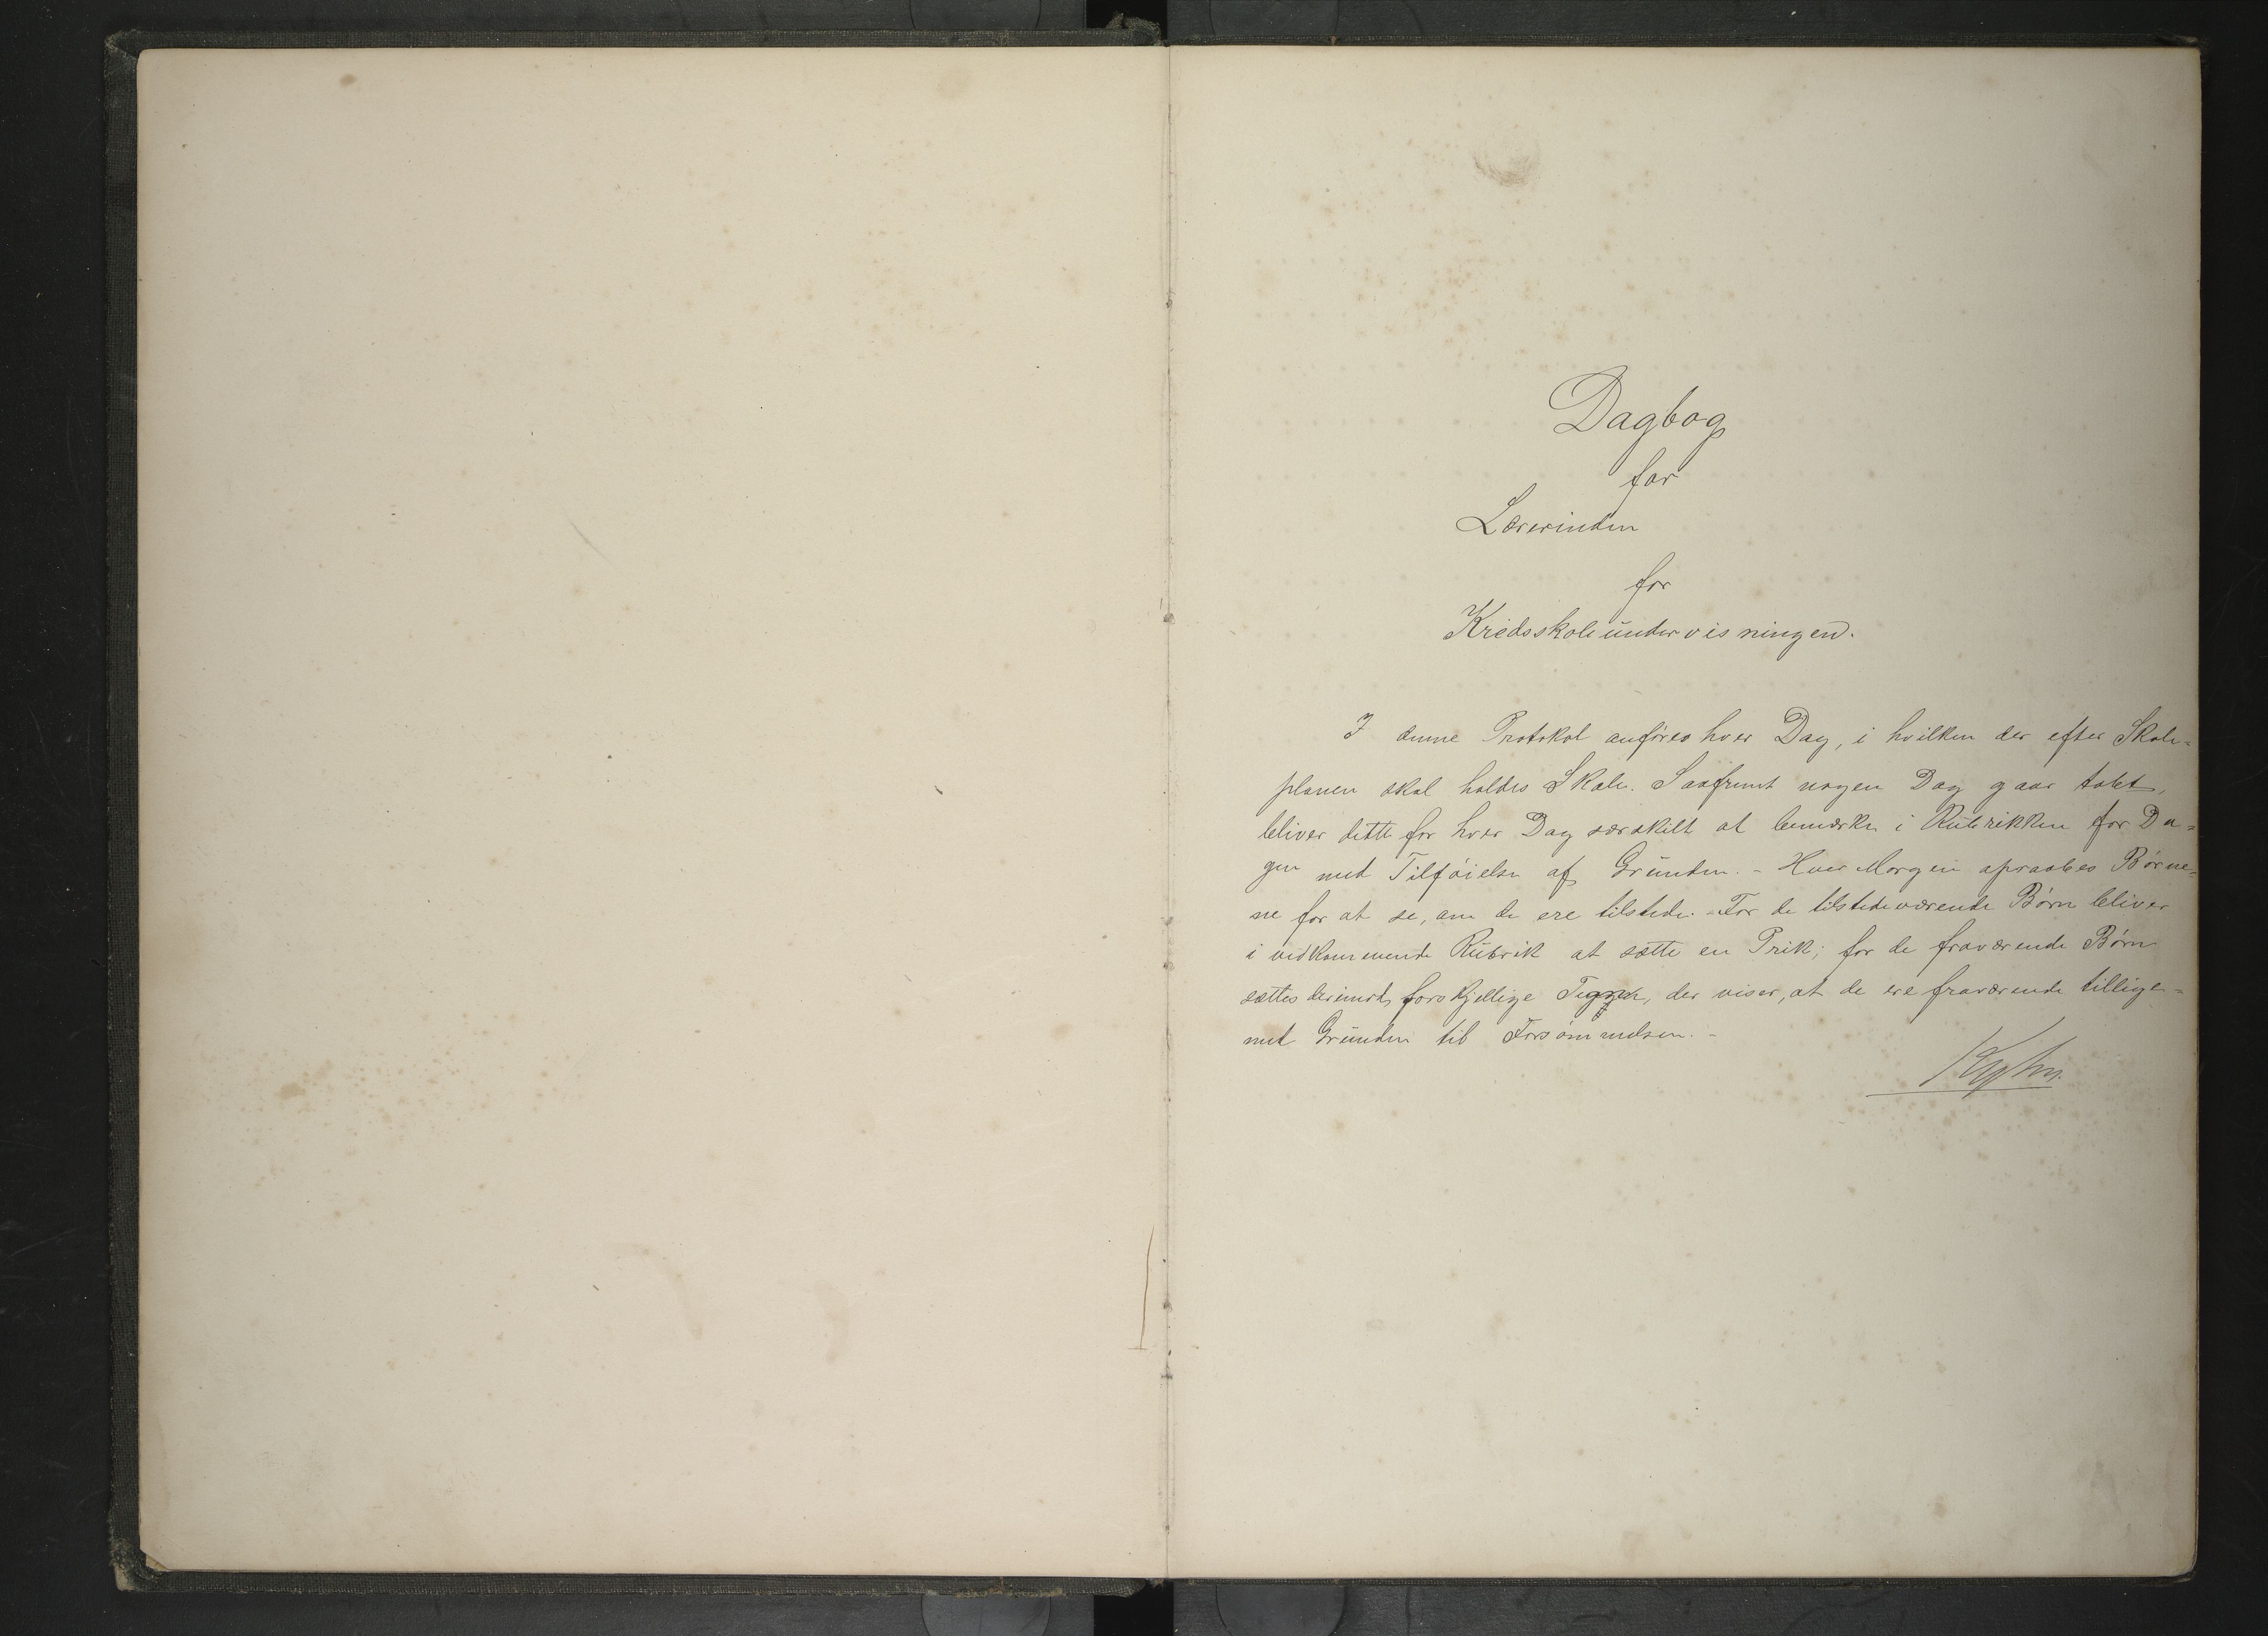 Dagbog
for
Lærerinden
for
Kredsskoleundervisningen.
I denne Protokol anføres hver Dag, i hvilken der efter Skole-
planen skal holdes Skole. Saafremt nogen Dag gaar tabt,
bliver dette for hver Dag særskilt at bemærke i Rubrikken for Da-
gen med Tilføielse af Grunden. - Hver Morgen opraabes Børne-
ne for at se, om de ere tilstede. - For de tilstedeværende Børn bliver
i vedkommende Rubrik at sætte en Prik; for de fraværende Børn
sættes derimod forskjellige Tegn, der viser, at de ere fraværende tillige-
med Grunden til Forsømmelsen. -